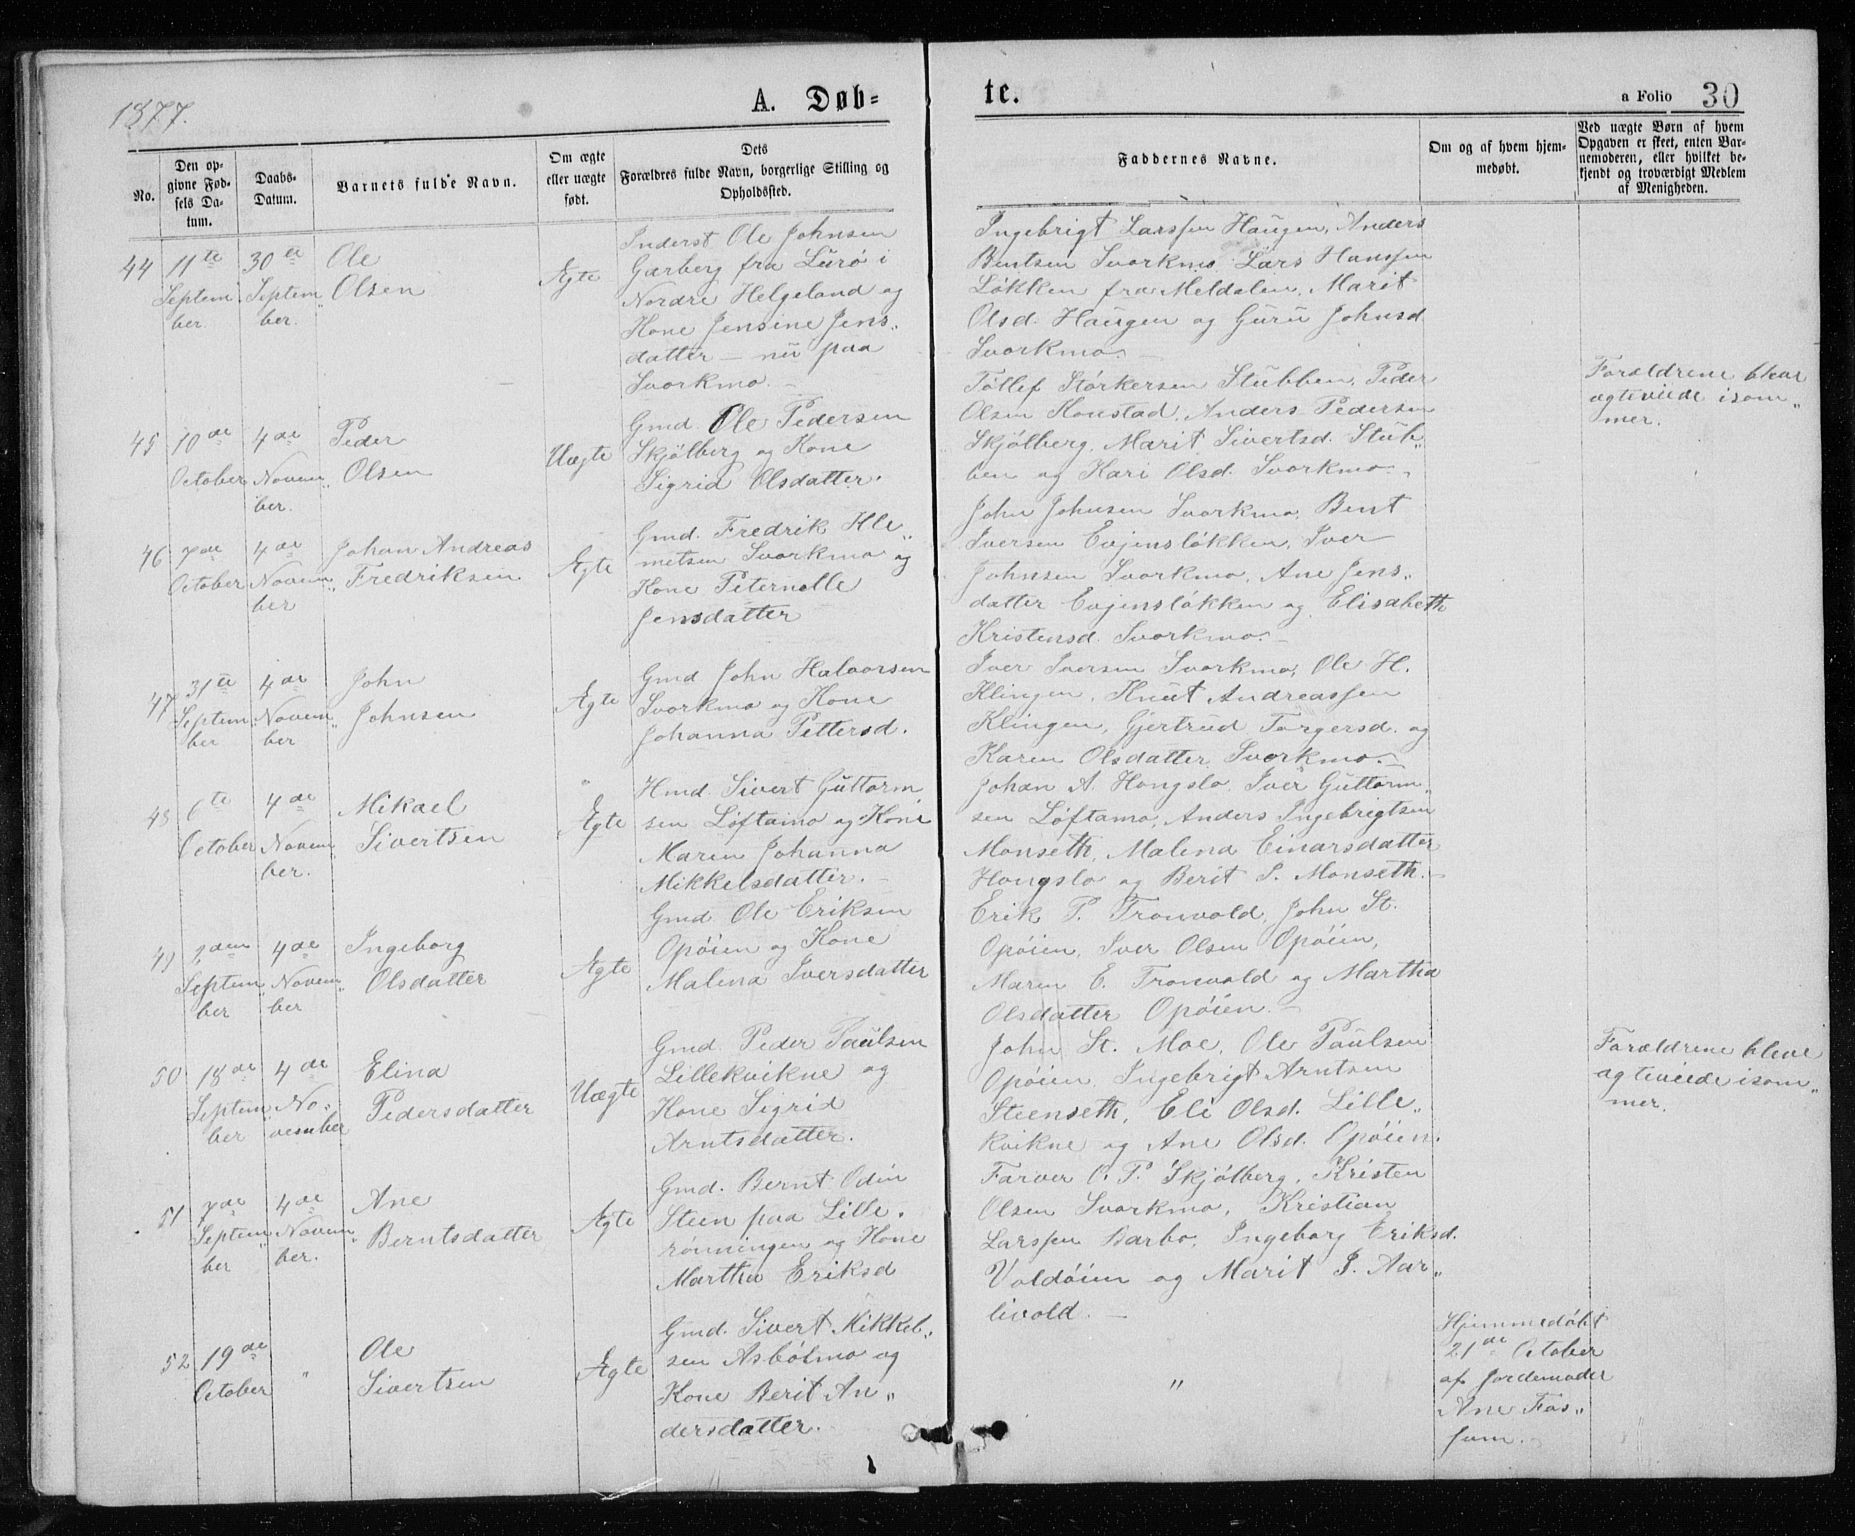 1877.
A. Døb=
te.
a Folio 30
No.
Den op-
givne Fød-
sels Da-
tum.
Daabs-
Datum.
Barnets fulde Navn.
Om ægte
eller uægte
født.
Dets
Forældres fulde Navn, borgerlige Stilling og
Opholdssted.
Faddernes Navne.
Om og af hvem hjem-
medøbt.
Ved uægte Børn af hvem
Opgaven er skeet, enten Bar-
nemoderen, eller hvilket be-
kjendt og troværdigt Medlem
af Menigheden.
44
11te
Septem
ber.
30te
Septem
ber.
Ole
Olsen
Ægte
Inderst Ole Johnsen
Garberg fra Lurø i
Nordre Helgeland og
Kone Jensine Jens„
datter — nu paa
Svorkmo. –
Ingebrigt Larssen Haugen, Anders
Bentsen Svorkmo, Lars Hanssen
Løkken fra Meldalen, Marit
Olsd. Haugen og Guru Johnsd
Svorkmo. –
45
10de
October
4de
Novem„
ber.
Peder
Olsen
Uægte
Gmd. Ole Pedersen
Skjølberg og Kone
Sigrid Olsdatter.
Tøllef Størkersen Stubben, Peder
Olsen Konstad, Anders Pedersen
Skjølberg, Marit Sivertsd. Stub„
ben og Kari Olsd. Svorkmo. –
Forældrene bleve
ægteviede isom„
mer.
46
7de
October
4de
Novem„
ber
Johan Andreas
Fredriksen
Ægte
Gmd. Fredrik Kle„
metsen Svorkmo og
Kone Peternelle
Jensdatter
John Johnsen Svorkmo, Bent
Iversen Evjensløkken, Iver
Johnsen Svorkmo, Ane Jens„
datter Evjensløkken og Elisabeth
Kristensd. Svorkmo. –
47
31te
Septem
ber
4de
Novem„
ber
John
Johnsen
Ægte
Gmd John Halvorsen
Svorkmo og Kone
Johanna Pettersd.
Iver Iversen Svorkmo, Ole H.
Klingen, Knut Andreassen
Klingen, Gjertrud Torgersd. og
Karen Olsdatter Svorkmo. –
48
6te
October
4de
Novem„
ber.
Mikael
Sivertsen
Ægte
Hmd. Sivert Guttorm
sen Løftamo og Kone
Maren Johanna
Mikkelsdatter. –
Johan A. Hongslo, Iver Guttorm„
sen Løftamo, Anders Ingebrigtsen
Monseth, Malena Einarsdatter
Hongslo og Berit S. Monseth. –
49
2den
Septem„
ber
4de
Novem„
ber
Ingeborg
Olsdatter
Ægte
Gmd. Ole Eriksen
Opøien og Kone
Malena Iversdatter
Erik P. Tronvold, John St.
Opøien, Iver Olsen Opøien,
Maren E. Tronvold og Martha
Olsdatter Opøien. –
50
18de
Septem„
ber
4de
No„
vember
Elina
Pedersdatter
Uægte
Gmd. Peder Paulsen
Lillekvikne og
Kone Sigrid
Arntsdatter.
John St. Moe, Ole Paulsen
Opøien, Ingebrigt Arntsen
Steenseth, Eli Olsd. Lille„
kvikne og Ane Olsd. Opøien.
Forældrene bleve
ægteviede isom„
mer.
51
7de
Septem„
ber
4de
Novem„
ber.
Ane
Berntsdatter
Ægte
Gmd. Bernt Odin
Steen paa Lille„
rønningen og Kone
Martha Eriksd
Farver O. P. Skjølberg, Kristen
Olsen Svorkmo, Kristian
Larssen Barbo, Ingeborg Eriksd.
Voldøien og Marit J. Aar„
livold. –
52
19de
October
"
Ole
Sivertsen
Ægte
Gmd. Sivert Mikkel„
sen Asbølmo og
Kone Berit An„
dersdatter.
"
Hjemmedøbt
21de October
af Jordemoder
Ane Fos„
sum.